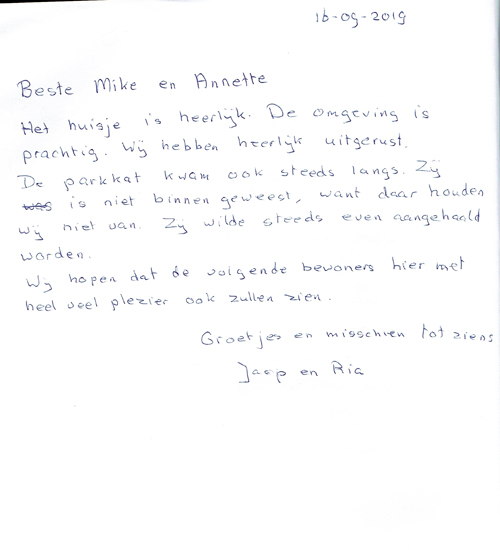 16-09-2019
Beste Mike en Annette
Het huisje is heerlijk. De omgeving is
prachtig. Wij hebben heerlijk uitgerust.
De parkkat kwam ook steeds langs. Zij
was is niet binnen geweest, want daar houden
wij niet van. Zij wilde steeds even aangehaald
worden.
Wij hopen dat de volgende bewoners hier met
heel veel plezier ook zullen zien.
Groetjes en misschien tot ziens
Jaap en Ria